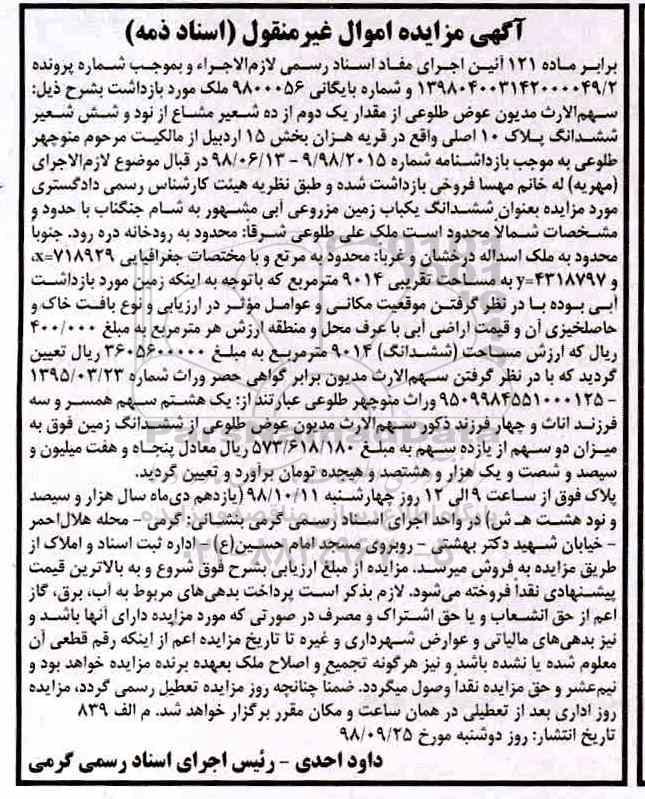 آگهی مزایده اموال غیرمنقول (اسناد ذمه)
برابر ماده ۱۲۱ آئین اجرای مفاد اسناد رسمی لازم‌الاجراء و بموجب شماره پرونده
۱۳۹۸۰۴۰۰۳۱۴۲۰۰۰۰۴۹/۲ و شماره بایگانی ۹۸۰۰۰۵۶ ملک مورد بازداشت بشرح ذیل:
سهم‌الارث مدیون عوض طلوعی از مقدار یک دوم از ده شعیر مشاع از نود و شش شعیر
ششدانگ پلاک ۱۰ اصلی واقع در قریه هزان بخش ۱۵ اردبیل از مالکیت مرحوم منوچهر
طلوعی به موجب بازداشنامه شماره ۹/۹۸/۲۰۱۵ – ۹۸/۰۶/۱۳ در قبال موضوع لازم‌الاجرای
(مهریه) له خانم مهسا فروخی بازداشت شده و طبق نظریه هیئت کارشناس رسمی دادگستری
مورد مزایده بعنوان ششدانگ یکباب زمین مزروعی آبی مشهور به شام جنگناب با حدود و
مشخصات شمالاً محدود است ملک علی طلوعی شرقا: محدود به رودخانه دره رود. جنوبا
محدود به ملک اسداله درخشان و غربا: محدود به مرتع و با مختصات جغرافیایی x=۷۱۸۹۲۹،
و y=۴۳۱۸۷۹۷ به مساحت تقریبی ۹۰۱۴ مترمربع که باتوجه به اینکه زمین مورد بازداشت
آبی بوده با در نظر گرفتن موقعیت مکانی و عوامل مؤثر در ارزیابی و نوع بافت خاک و
حاصلخیزی آن و قیمت اراضی آبی با عرف محل و منطقه ارزش هر مترمربع به مبلغ ۴۰۰/۰۰۰
ریال که ارزش مساحت (ششدانگ) ۹۰۱۴ مترمربع به مبلغ ۳۶۰۵۶۰۰۰۰۰ ریال تعیین
گردید که با در نظر گرفتن سهم‌الارث مدیون برابر گواهی حصر وراث شماره ۱۳۹۵/۰۳/۲۳
– ۹۵۰۹۹۸۴۵۵۱۰۰۰۱۲۵ وراث منوچهر طلوعی عبارتند از: یک هشتم سهم همسر و سه
فرزند اناث و چهار فرزند ذکور سهم‌الارث مدیون عوض طلوعی از ششدانگ زمین فوق به
میزان دو سهم از یازده سهم به مبلغ ۵۷۳/۶۱۸/۱۸۰ ریال معادل پنجاه و هفت میلیون و
سیصد و شصت و یک هزار و هشتصد و هیجده تومان برآورد و تعیین گردید.
پلاک فوق از ساعت ۹ الی ۱۲ روز چهارشنبه ۹۸/۱۰/۱۱ (یازدهم دی‌ماه سال هزار و سیصد
و نود هشت هـ ش) در واحد اجرای اسناد رسمی گرمی بنشانی: گرمی – محله هلال‌احمر
– خیابان شهید دکتر بهشتی – روبروی مسجد امام حسین(ع) – اداره ثبت اسناد و املاک از
طریق مزایده به فروش میرسد. مزایده از مبلغ ارزیابی بشرح فوق شروع و به بالاترین قیمت
پیشنهادی نقداً فروخته می‌شود. لازم بذکر است پرداخت بدهی‌های مربوط به آب، برق، گاز
اعم از حق انشعاب و یا حق اشتراک و مصرف در صورتی که مورد مزایده دارای آنها باشد و
نیز بدهی‌های مالیاتی و عوارض شهرداری و غیره تا تاریخ مزایده اعم از اینکه رقم قطعی آن
معلوم شده یا نشده باشد و نیز هرگونه تجمیع و اصلاح ملک بعهده برنده مزایده خواهد بود و
نیم‌عشر و حق مزایده نقداً وصول میگردد. ضمناً چنانچه روز مزایده تعطیل رسمی گردد، مزایده
روز اداری بعد از تعطیلی در همان ساعت و مکان مقرر برگزار خواهد شد. م الف ۸۳۹
تاریخ انتشار: روز دوشنبه مورخ ۹۸/۰۹/۲۵
داود احدی – رئیس اجرای اسناد رسمی گرمی